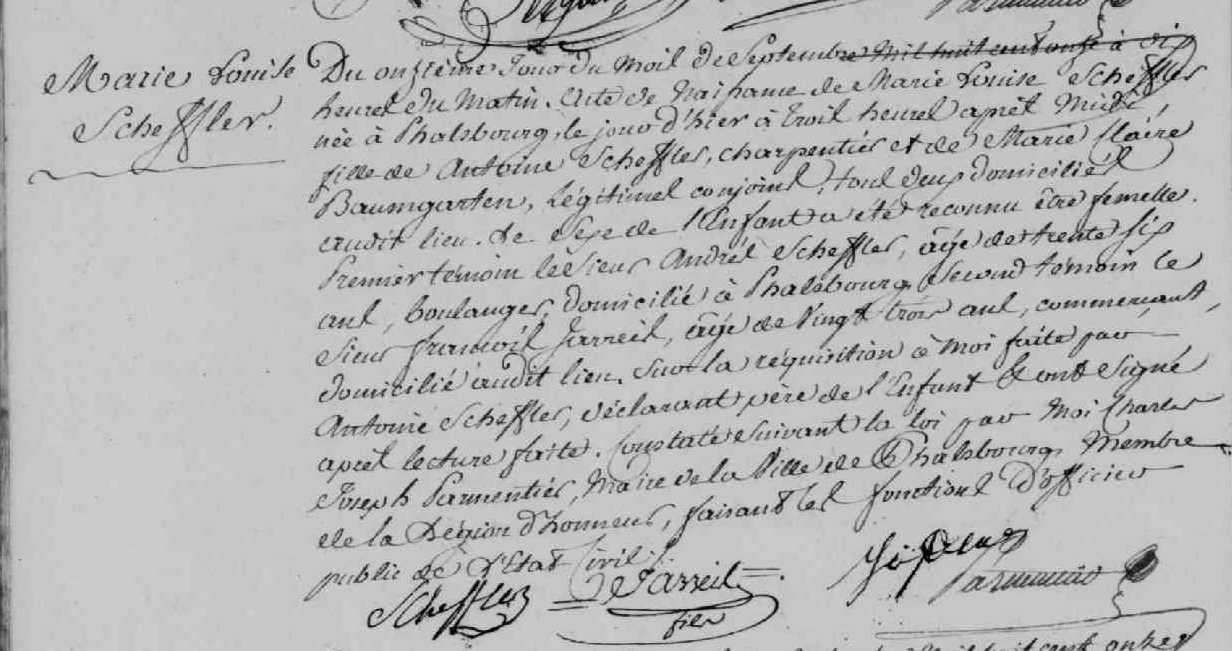 Marie Louise
Scheffler.
Du onzième Jour du mois de Septembre mil huit cent onze à dix
heures du matin. Acte de Naissance de Marie Louise Scheffler
née à Phalsbourg, le jour d'hier à trois heures après Midi,
fille de Antoine Scheffler, charpentier et de Marie Claire
Baumgarten, Légitimes conjoints, tous deux domiciliés
audit lieu. Le sexe de l'Enfant a été reconnu être femelle.
Premier témoin le Sieur André Scheffler, âgé de trente six
ans, boulanger, domicilié à Phalsbourg, Second témoin le
Sieur François Jarreil, âgé de Vingt trois ans, commerçant,
domicilié audit lieu. Sur la réquisition à moi faite par
Antoine Scheffler, déclarant père de l'Enfant & ont Signé
après lecture faite. Constaté suivant la loi par Moi Charles
Joseph Parmentier, Maire de la Ville de Phalsbourg, Membre
de la Légion d'honneur, faisant les fonctions D'officier
public de L'Etat Civil.
Scheffler Jarreil
fils
Parmentier
mil huit cent onze